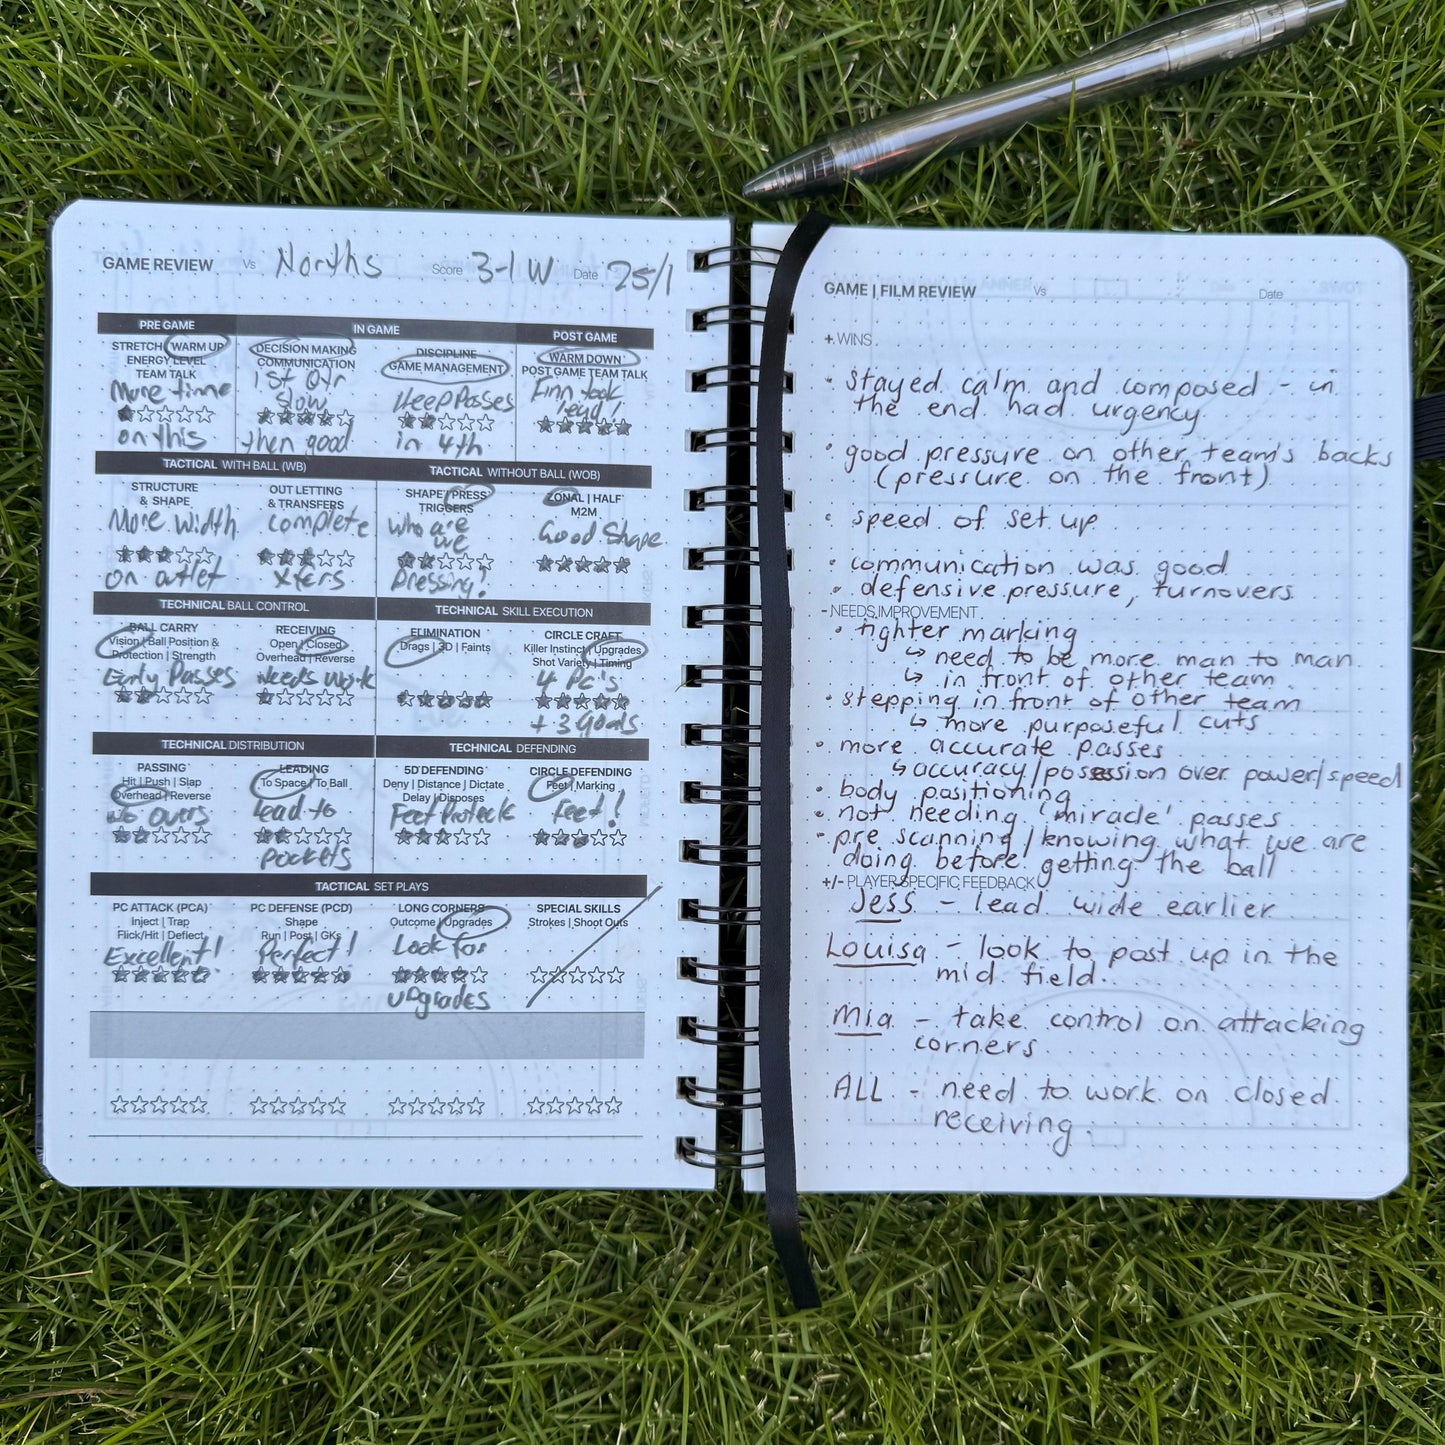 GAME REVIEW Vs Norths Score 3-1 W Date 25/1
PRE GAME IN GAME POST GAME
STRETCH | WARM UP
ENERGY LEVEL
TEAM TALK
More time
on this
DECISION MAKING
COMMUNICATION
1st Qtr
Slow
then good
DISCIPLINE
GAME MANAGEMENT
Keep Passes
in 4th
WARM DOWN
POST GAME TEAM TALK
Finn took
lead!
TACTICAL WITH BALL (WB) TACTICAL WITHOUT BALL (WOB)
STRUCTURE
& SHAPE
More Width
on outlet
OUT LETTING
& TRANSFERS
complete
xfers
SHAPE | PRESS
TRIGGERS
who are
we
Pressing!
ZONAL | HALF
M2M
Good Shape
TECHNICAL BALL CONTROL TECHNICAL SKILL EXECUTION
BALL CARRY
Vision | Ball Position &
Protection | Strength
Early Passes
RECEIVING
Open | Closed
Overhead | Reverse
Needs Work
ELIMINATION
Drags | 3D | Faints
CIRCLE CRAFT
Killer Instinct | Upgrades
Shot Variety | Timing
4 PC's
+ 3 goals
TECHNICAL DISTRIBUTION TECHNICAL DEFENDING
PASSING
Hit | Push | Slap
Overhead | Reverse
No Overs
LEADING
To Space | To Ball
Lead to
pockets
5D DEFENDING
Deny | Distance | Dictate
Delay | Disposes
Feet Protect
CIRCLE DEFENDING
Feet | Marking
Feet!
TACTICAL SET PLAYS
PC ATTACK (PCA)
Inject | Trap
Flick/Hit | Deflect
Excellent!
PC DEFENSE (PCD)
Shape
Run | Post | GKs
Perfect!
LONG CORNERS
Outcome | Upgrades
Look for
upgrades
SPECIAL SKILLS
Strokes | Shoot Outs
GAME | FILM REVIEW Vs Date
+ WINS
• Stayed calm and composed - in
the end had urgency
• good pressure on other team's backs
(pressure on the front)
• speed of set up
• communication was good
• defensive pressure, turnovers
- NEEDS IMPROVEMENT
• tighter marking
↳ need to be more man to man
↳ in front of other team
• stepping in front of other team
↳ more purposeful cuts
• more accurate passes
↳ accuracy/possession over power/speed
• body positioning
• not needing 'miracle' passes
• pre scanning/knowing what we are
doing before getting the ball
+/- PLAYER SPECIFIC FEEDBACK
Jess - lead wide earlier
Louisa - look to post up in the
mid field
Mia - take control on attacking
corners
ALL - need to work on closed
receiving